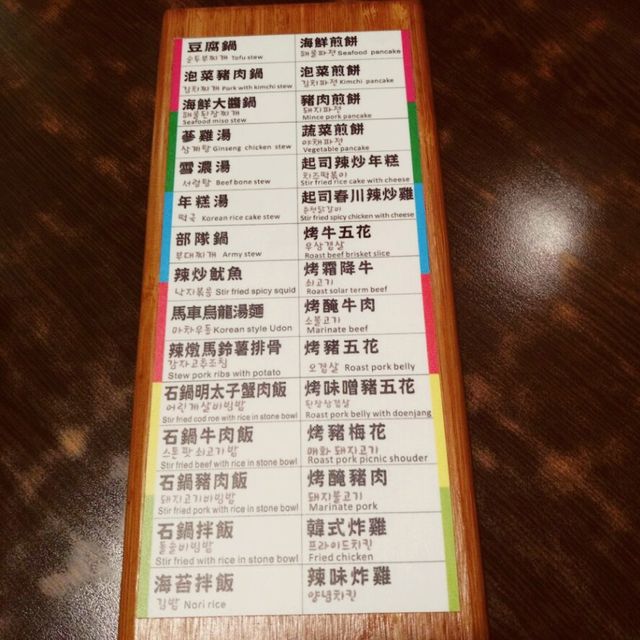 豆腐鍋
순두부찌개 Tofu stew
泡菜豬肉鍋
김치찌개 Pork with kimchi stew
海鮮大醬鍋
해물된장찌개
Seafood miso stew
蔘雞湯
삼계탕 Ginseng chicken stew
雪濃湯
서렁탕 Beef bone stew
年糕湯
떡국 Korean rice cake stew
部隊鍋
부대찌개 Army stew
辣炒魷魚
낙지볶음 Stir fried spicy squid
馬車烏龍湯麵
마차우동 Korean style Udon
辣燉馬鈴薯排骨
감자고추조림
Stew pork ribs with potato
石鍋明太子蟹肉飯
어린게살비빔밥
Stir fried cod roe with rice in stone bowl
石鍋牛肉飯
스톤팟 쇠고기 밥
Stir fried beef with rice in stone bowl
石鍋豬肉飯
돼지고기비빔밥
Stir fried pork with rice in stone bowl
石鍋拌飯
돌솥비빔밥
Stir fried with rice in stone bowl
海苔拌飯
김밥 Nori rice
海鮮煎餅
해물파전 Seafood pancake
泡菜煎餅
김치파전 Kimchi pancake
豬肉煎餅
돼지파전
Mince pork pancake
蔬菜煎餅
야채파전
Vegetable pancake
起司辣炒年糕
치즈떡볶이
Stir fried rice cake with cheese
起司春川辣炒雞
춘천닭갈비
Stir fried spicy chicken with cheese
烤牛五花
우삼겹살
Roast beef brisket slice
烤霜降牛
쇠고기
Roast solar term beef
烤醃牛肉
소불고기
Marinate beef
烤豬五花
오겹살 Roast pork belly
烤味噌豬五花
된장삼겹살
Roast pork belly with doenjang
烤豬梅花
매화 돼지고기
Roast pork picnic shouder
烤醃豬肉
돼지불고기
Marinate pork
韓式炸雞
프라이드치킨
Fried chicken
辣味炸雞
양념치킨